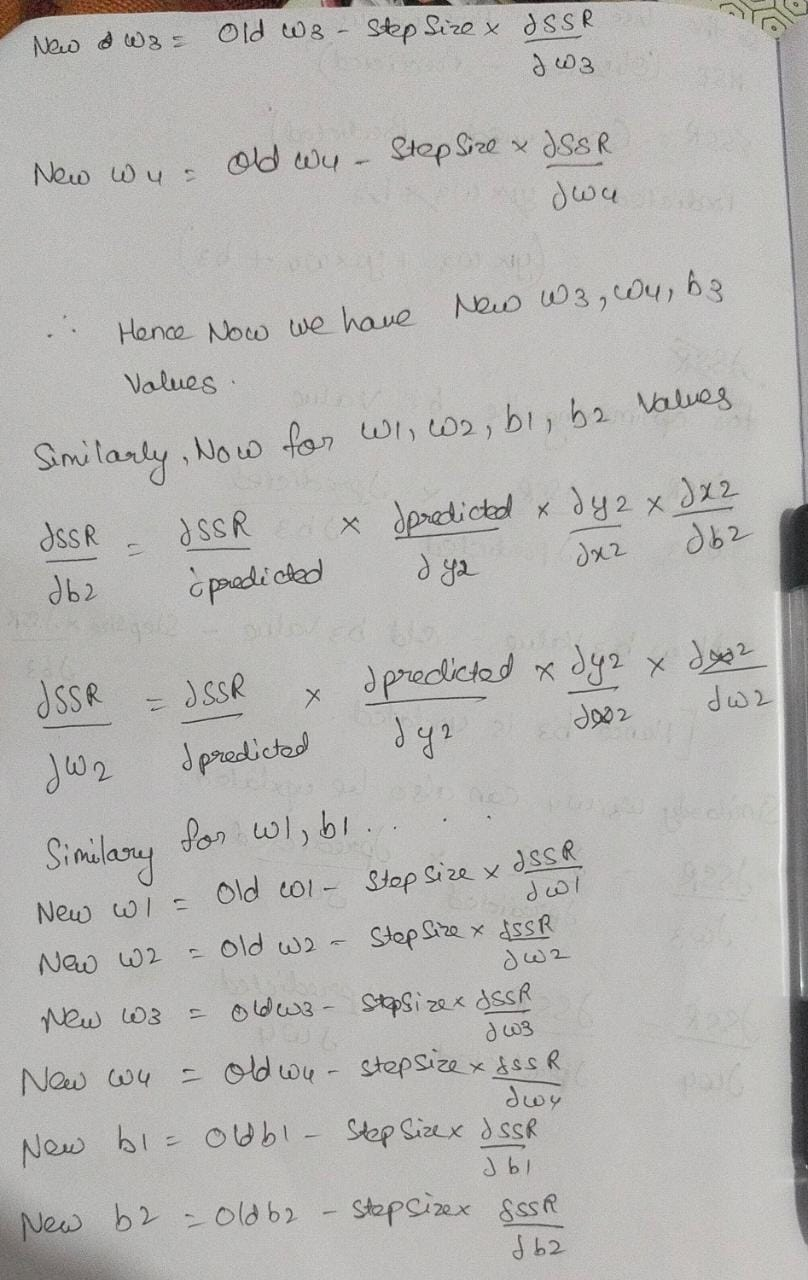 New w3 = Old w3 - Step Size x ∂SSR / ∂w3
New w4 = Old w4 - Step Size x ∂SSR / ∂w4
∴ Hence Now we have New w3, w4, b3
Values.
Similarly, Now for w1, w2, b1, b2 Values
∂SSR / ∂b2 = ∂SSR / ∂predicted x ∂predicted / ∂y2 x ∂y2 / ∂x2 x ∂x2 / ∂b2
∂SSR / ∂w2 = ∂SSR / ∂predicted x ∂predicted / ∂y2 x ∂y2 / ∂x2 x ∂x2 / ∂w2
Similary for w1, b1 . . . . .
New w1 = Old w1 - Step Size x ∂SSR / ∂w1
New w2 = Old w2 - Step Size x ∂SSR / ∂w2
New w3 = Old w3 - StepSize x ∂SSR / ∂w3
New w4 = Old w4 - Step Size x ∂SSR / ∂w4
New b1 = Old b1 - Step Size x ∂SSR / ∂b1
New b2 = Old b2 - Step Size x ∂SSR / ∂b2